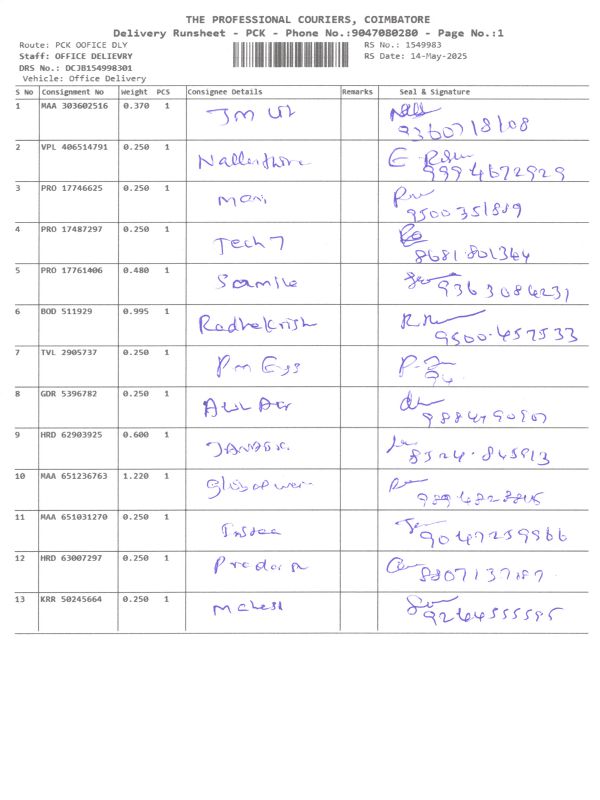 THE PROFESSIONAL COURIERS, COIMBATORE
Delivery Runsheet - PCK - Phone No.:9047080280 - Page No.:1
Route: PCK OOFICE DLY
RS No.: 1549983
Staff: OFFICE DELIEVRY
RS Date: 14-May-2025
DRS No.: DCJB154998301
Vehicle: Office Delivery
S No Consignment No Weight PCS Consignee Details Remarks Seal & Signature
1 MAA 303602516 0.370 1
2 VPL 406514791 0.250 1
9994672929
3 PRO 17746625 0.250 1 Moni
9500351819
4 PRO 17487297 0.250 1 Tech 7
8681801364
5 PRO 17761406 0.480 1
9363084231
6 BOD 511929 0.995 1 Radhakrish
9500.457533
7 TVL 2905737 0.250 1
8 GDR 5396782 0.250 1
9 HRD 62903925 0.600 1
10 MAA 651236763 1.220 1
11 MAA 651031270 0.250 1
9047259966
12 HRD 63007297 0.250 1
13 KRR 50245664 0.250 1